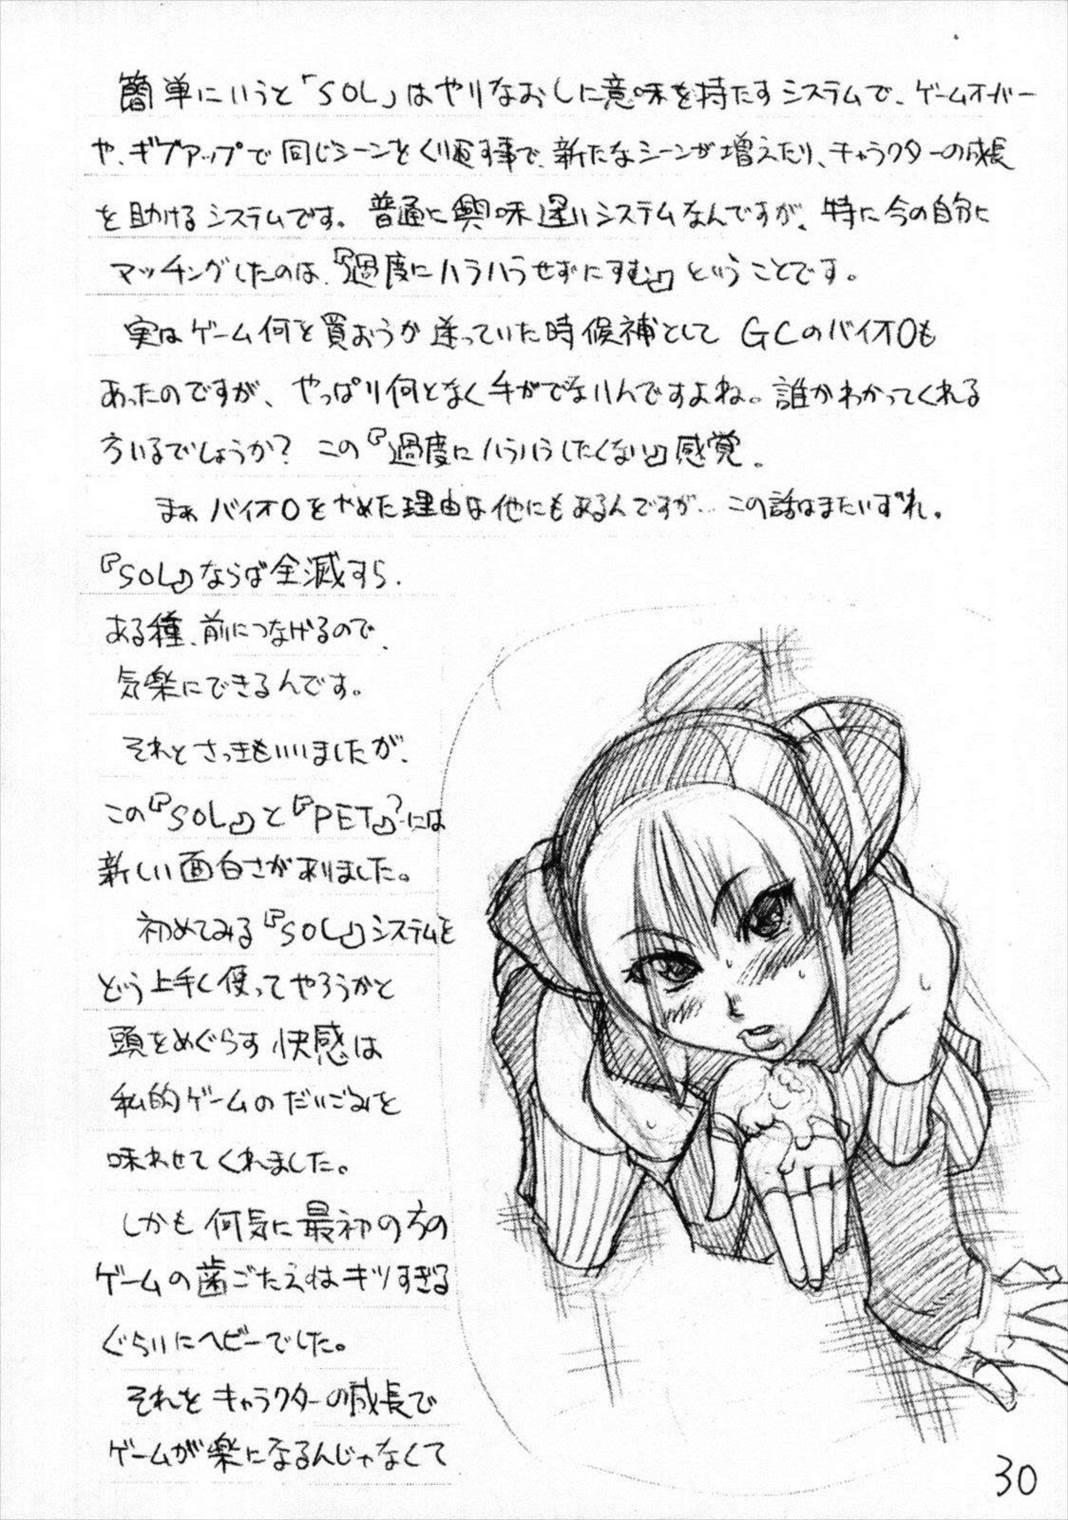 簡単にいうと「SOL」はやりなおしに意味を持たすシステムで、ゲームオーバー
や、ギブアップで同じシーンをくり返す事で、新たなシーンが増えたり、キャラクターの成長
を助けるシステムです。普通に興味深いシステムなんですが、特に今の自分に
マッチングしたのは、『過度にハラハラせずにすむ』ということです。
実はゲーム何を買おうか迷っていた時候補として GCのバイオ0も
あったのですが、やっぱり何となく手がでないんですよね。誰かわかってくれる
方いるでしょうか？ この『過度にハラハラしたくない』感覚。
まぁバイオ0をやめた理由は他にもあるんですが…この話はまたいずれ。
『SOL』ならば全滅すら、
ある種、前につなげるので、
気楽にできるんです。
それとさっきもいいましたが、
この『SOL』と『PET』には
新しい面白さがありました。
初めてみる『SOL』システムを
どう上手く使ってやろうかと
頭をめぐらす快感は
私的ゲームのだいごみを
味わせてくれました。
しかも何気に最初の方の
ゲームの歯ごたえはキツすぎる
ぐらいにヘビーでした。
それをキャラクターの成長で
ゲームが楽になるんじゃなくて
30